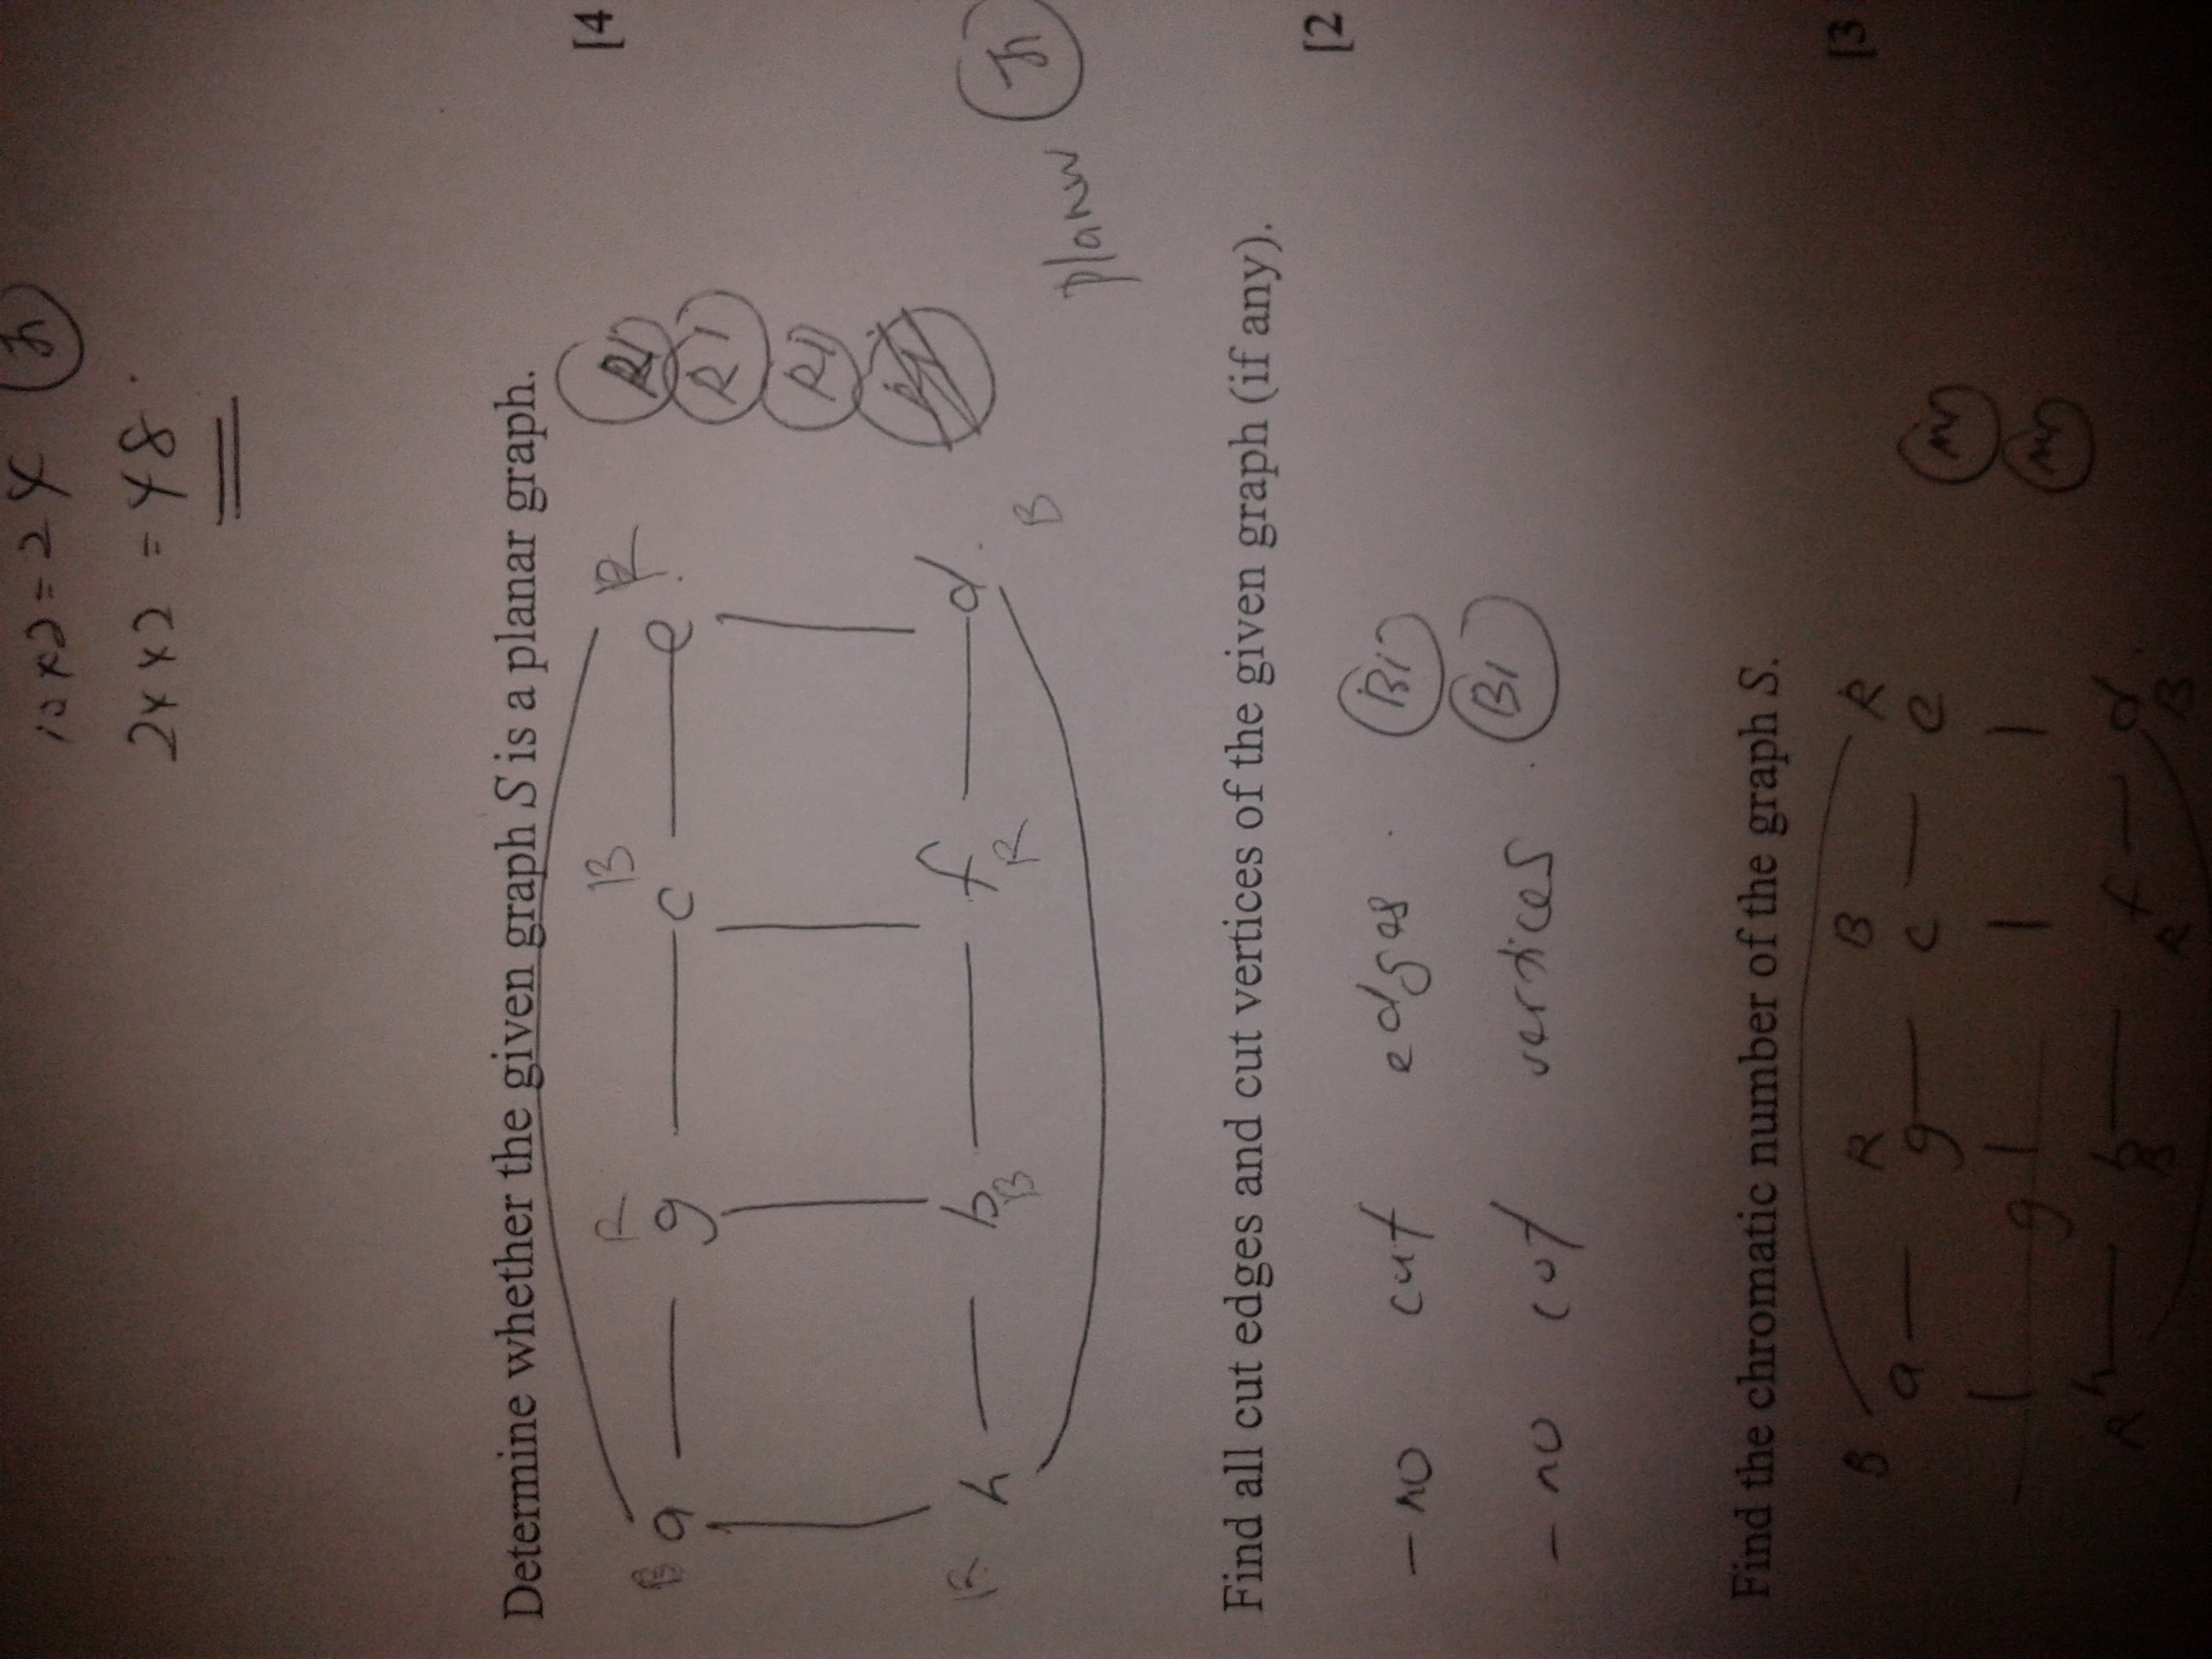 12 x 2 = 24 J1
24 x 2 = 48
Determine whether the given graph S is a planar graph.
[4
B R B R R1
a g c e R1
R1
h b f d
R B R B
planar J1
Find all cut edges and cut vertices of the given graph (if any).
[2
- no cut edges. B1
- no cut vertices. B1
Find the chromatic number of the graph S.
[3
B R B R
a g c e
g
h b f d
R B R B